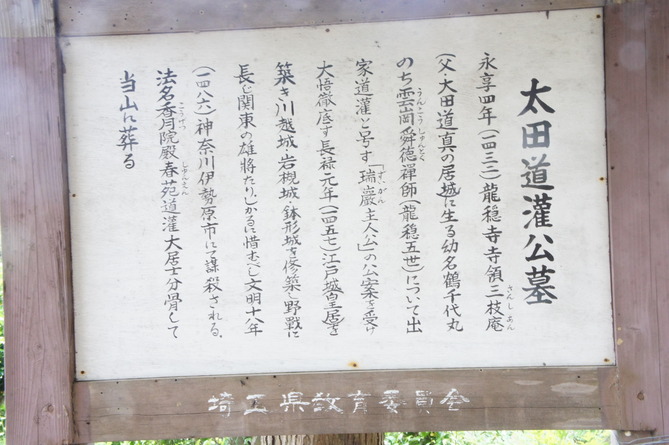 太田道灌公墓
永享四年(一四三二)龍穏寺寺領三枝庵
さんしあん
(父・太田道真の居城に生る幼名鶴千代丸
のち雲岡舜徳禅師(龍穏五世)について出
うんこうしゅんとく
家道灌と号す「瑞巖主人公」の公案を受け
ずいがん
大悟徹底す長禄元年(一四五七)江戸城(皇居)を
築き川越城・岩槻城・鉢形城を修築し野戦に
長じ関東の雄将たりしかるに惜むべし文明十八年
(一四八六)神奈川伊勢原市にて謀殺される、
法名香月院殿春苑道灌大居士分骨して
こうげつ しゅんえん
当山に葬る
埼玉県教育委員会